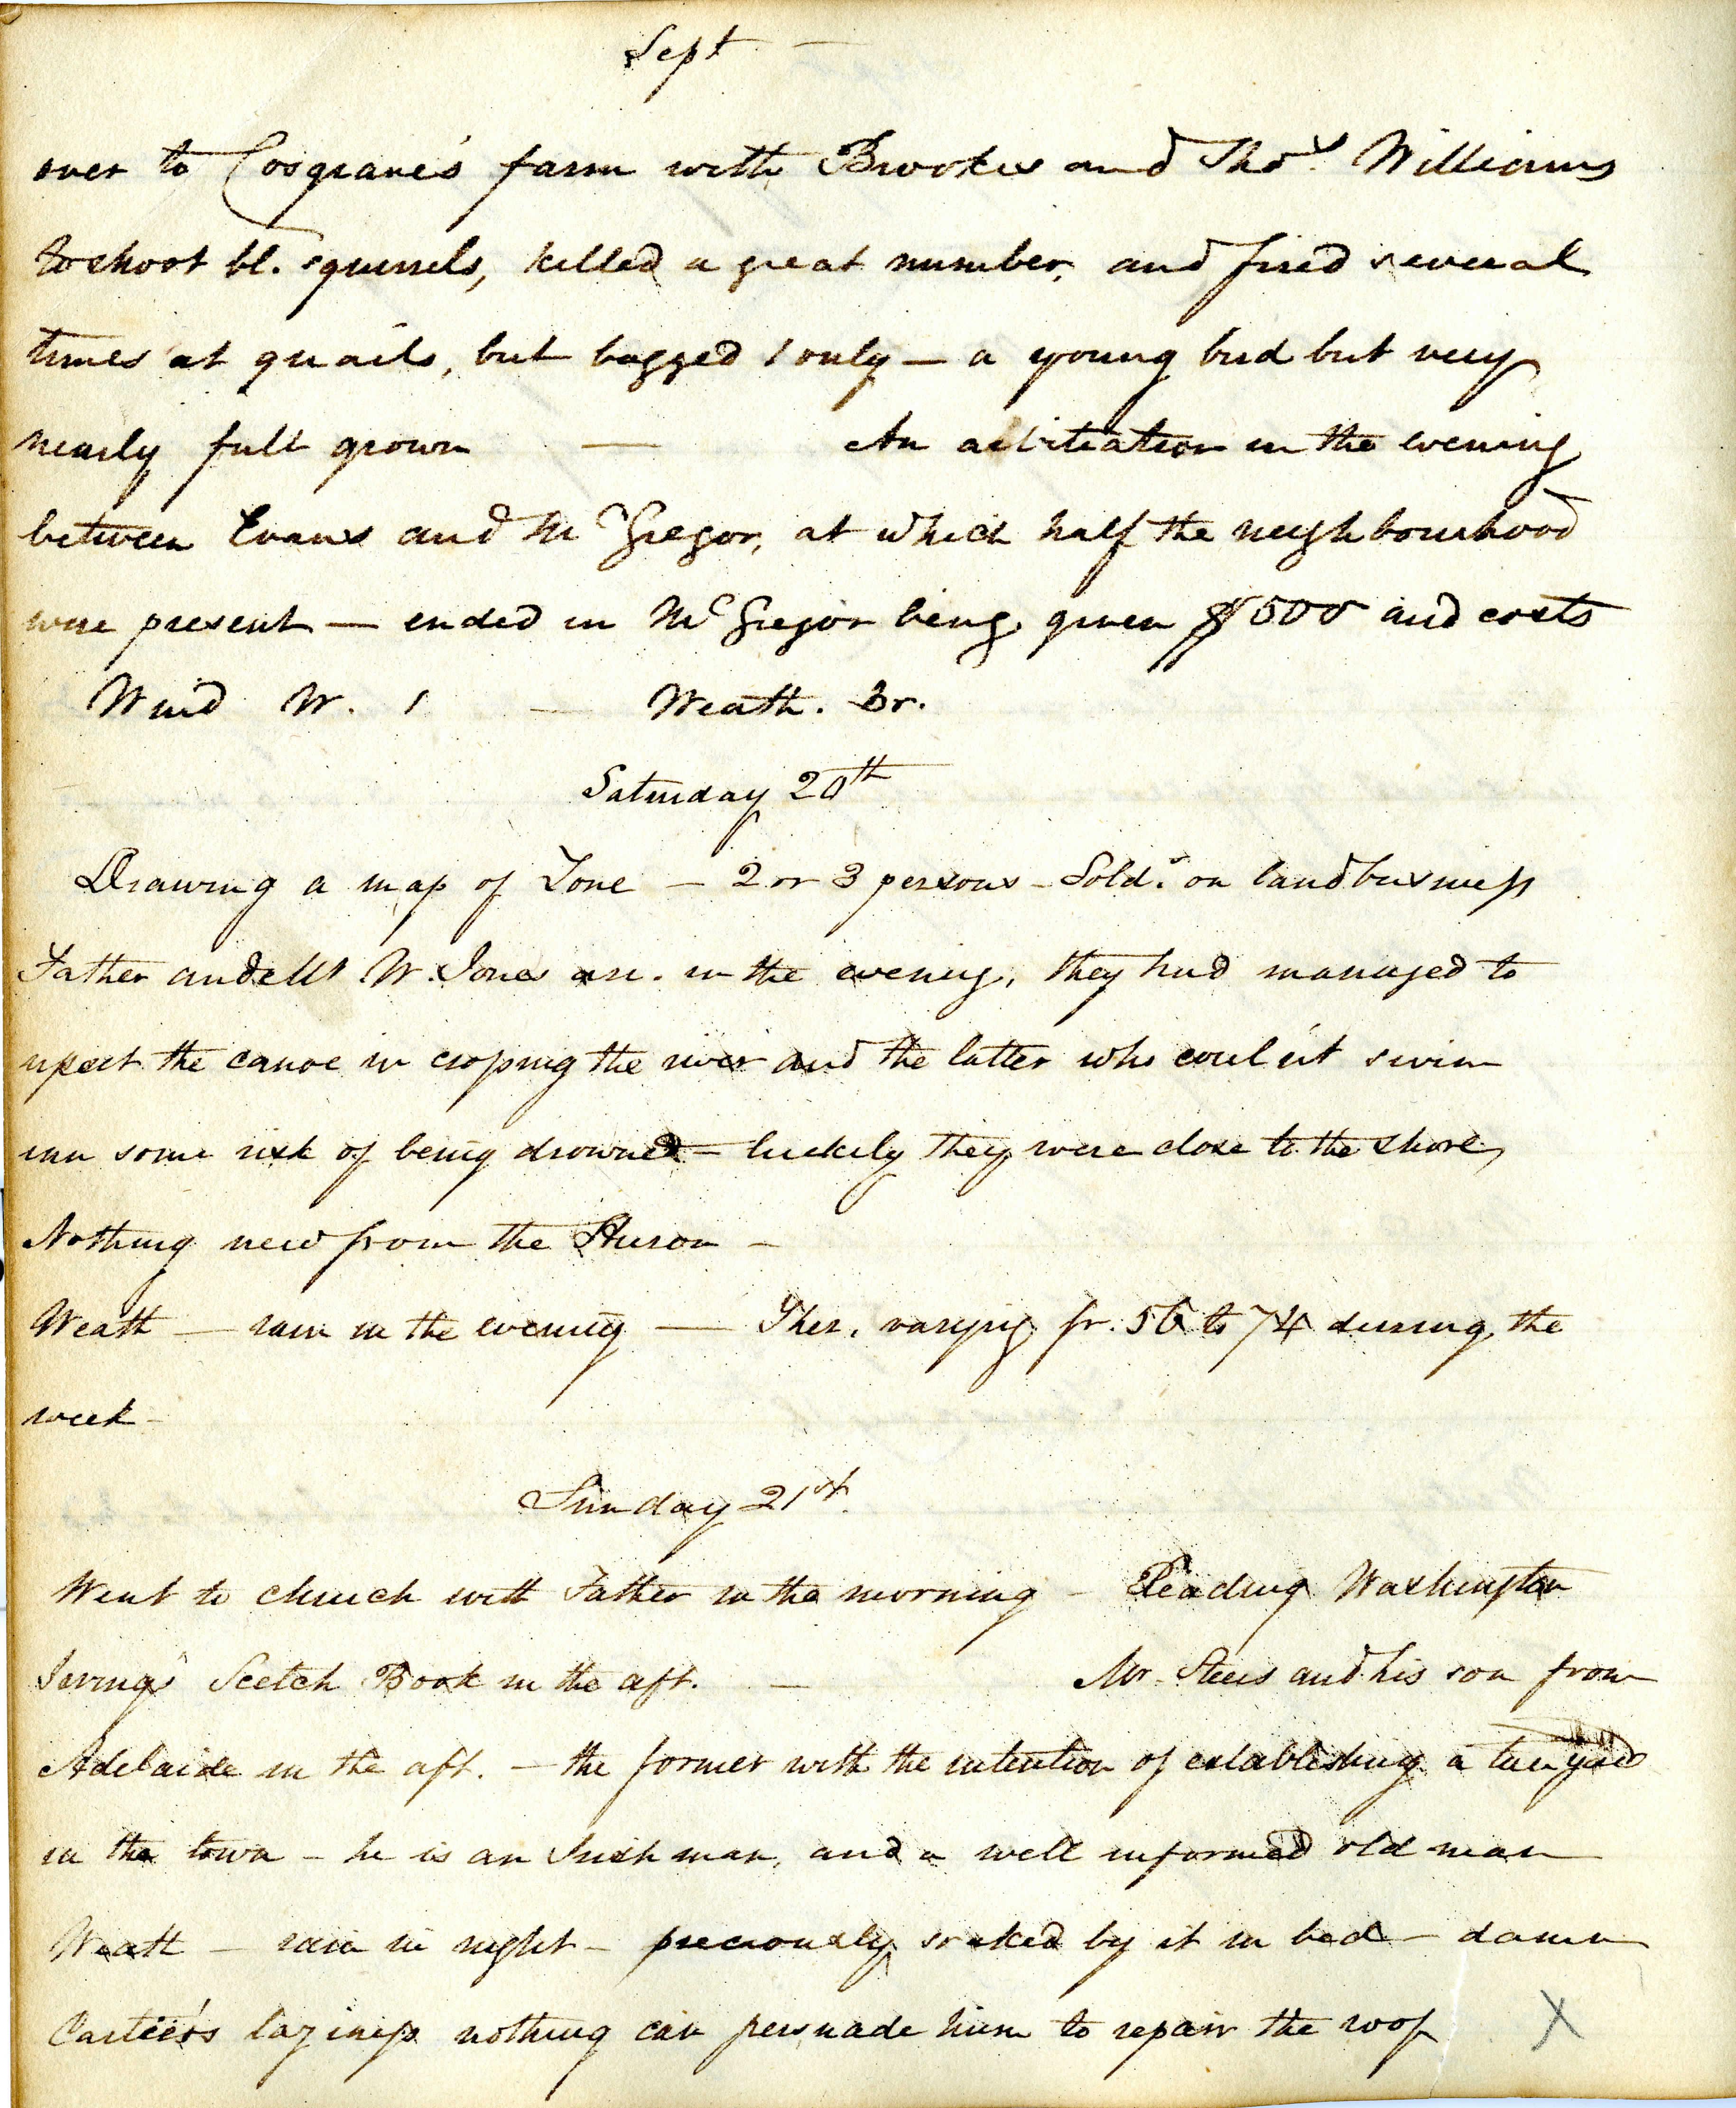 Sept —
over to Cosgrave's farm with Brookes and Thos. Williams
to shoot bl. squirrels, killed a great number, and fired several
times at quails, but bagged 1 only — a young bird but very
nearly full grown — An arbitration in the evening
between Evans and McGregor, at which half the neighbourhood
were present — ended in McGregor being given $500 and costs
Wind W. 1 — Weath. Br.
Saturday 20th
Drawing a map of Zone — 2 or 3 persons - Sold. on land business
Father and W. Jones arr. in the evening, they had managed to
upset the canoe in crossing the river and the latter who could'nt swim
ran some risk of being drowned — luckily they were close to the shore,
Nothing new from the Huron —
Weath — rain in the evening — Ther. varying fr. 56 to 74 during the
week —
Sunday 21st.
Went to church with Father in the morning — Reading Washington
Irving's Scetch Book in the aft. — Mr. and his son from
Adelaide in the aft. — the former with the intention of establishing a tan yard
in the town — he is an Irishman, and a well informed old man
Weath — rain in night — preciously soaked by it in bed — damn
Cartier's laziness nothing can persuade him to repair the roof X